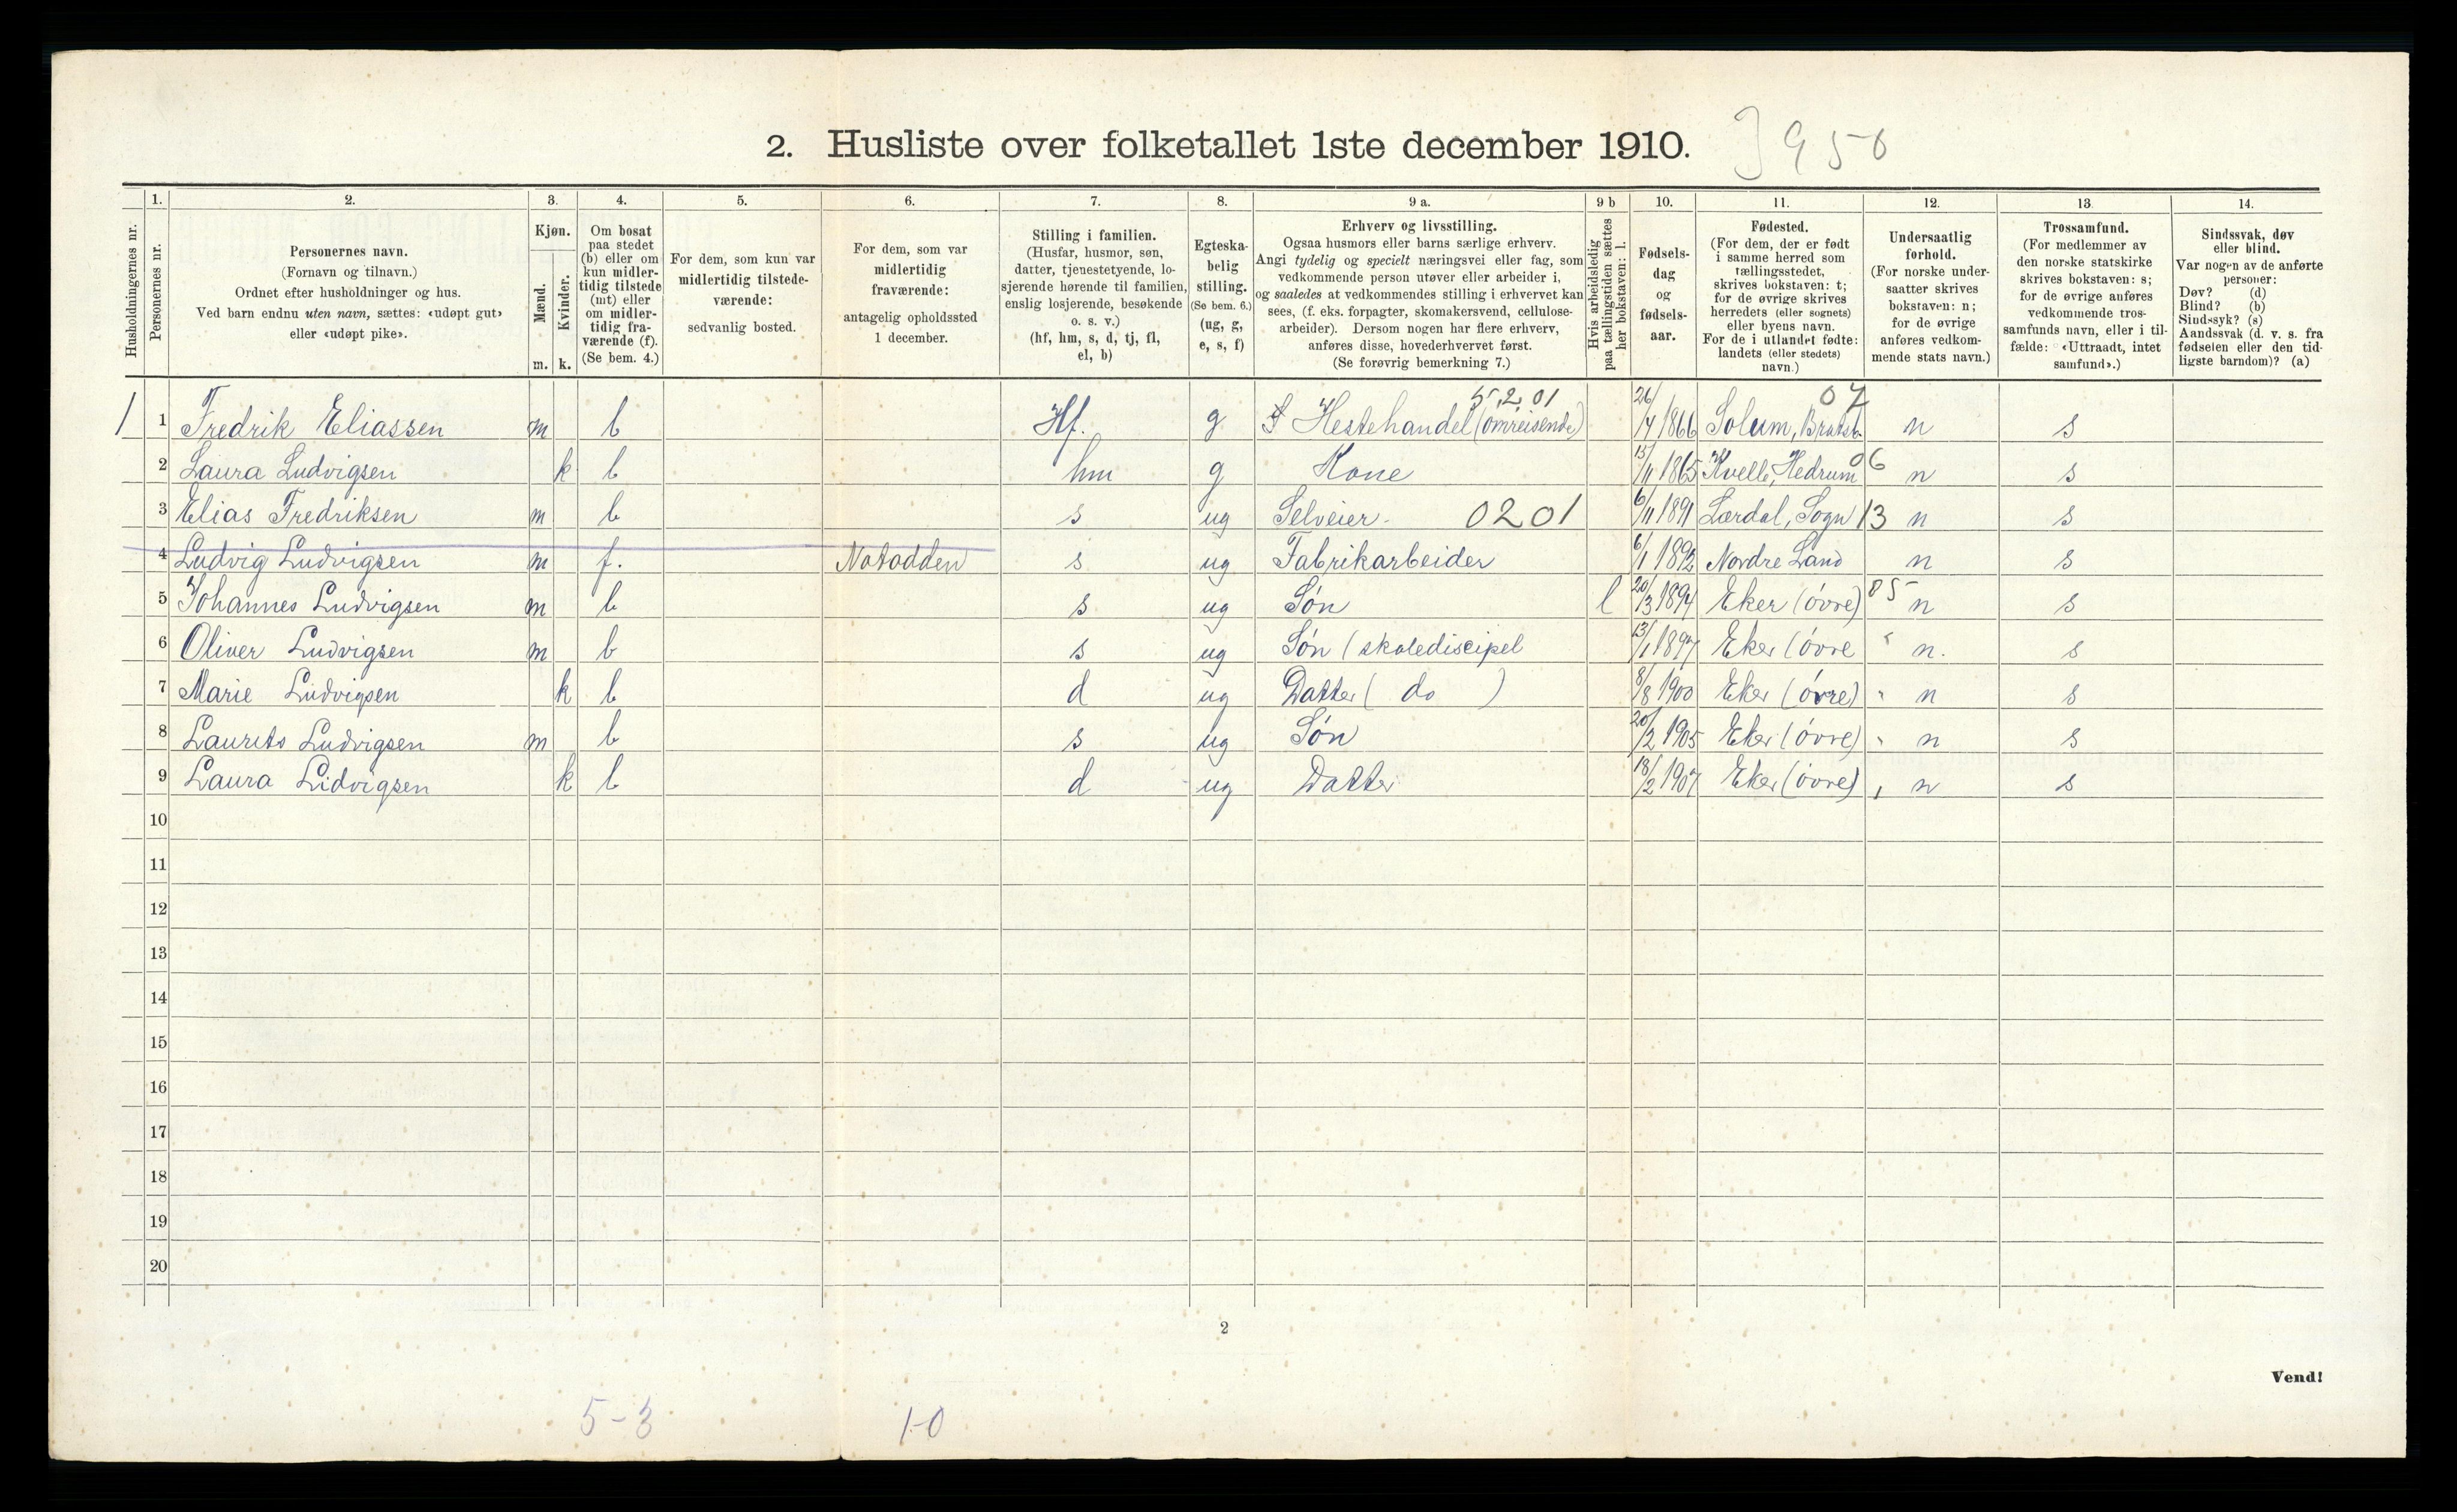 2. Husliste over folketallet 1ste december 1910.
1. 2. 3. 4. 5. 6. 7. 8. 9 a. 9 b 10. 11. 12. 13. 14.
Husholdningernes nr.
Personernes nr.
Personernes navn.
(Fornavn og tilnavn.)
Ordnet efter husholdninger og hus.
Ved barn endnu uten navn, sættes: «udøpt gut»
eller «udøpt pike».
Kjøn.
Mænd.
Kvinder.
m. k.
Om bosat
paa stedet
(b) eller om
kun midler-
tidig tilstede
(mt) eller
om midler-
tidig fra-
værende (f).
(Se bem. 4.)
For dem, som kun var
midlertidig tilstede-
værende:
sedvanlig bosted.
For dem, som var
midlertidig
fraværende:
antagelig opholdssted
1 december.
Stilling i familien.
(Husfar, husmor, søn,
datter, tjenestetyende, lo-
sjerende hørende til familien,
enslig losjerende, besøkende
o. s. v.)
(hf, hm, s, d, tj, fl,
el, b)
Egteska-
belig
stilling.
(Se bem. 6.)
(ug, g,
e, s, f)
Erhverv og livsstilling.
Ogsaa husmors eller barns særlige erhverv.
Angi tydelig og specielt næringsvei eller fag, som
vedkommende person utøver eller arbeider i,
og saaledes at vedkommendes stilling i erhvervet kan
sees, (f. eks. forpagter, skomakersvend, cellulose-
arbeider). Dersom nogen har flere erhverv,
anføres disse, hovederhvervet først.
(Se forøvrig bemerkning 7.)
Hvis arbeidsledig
paa tællingstiden sættes
her bokstaven: l.
Fødsels-
dag
og
fødsels-
aar.
Fødested.
(For dem, der er født
i samme herred som
tællingsstedet,
skrives bokstaven: t;
for de øvrige skrives
herredets (eller sognets)
eller byens navn.
For de i utlandet fødte:
landets (eller stedets)
navn.)
Undersaatlig
forhold.
(For norske under-
saatter skrives
bokstaven: n;
for de øvrige
anføres vedkom-
mende stats navn.)
Trossamfund.
(For medlemmer av
den norske statskirke
skrives bokstaven: s;
for de øvrige anføres
vedkommende tros-
samfunds navn, eller i til-
fælde: «Uttraadt, intet
samfund».)
Sindssvak, døv
eller blind.
Var nogen av de anførte
personer:
Døv? (d)
Blind? (b)
Sindssyk? (s)
Aandssvak (d. v. s. fra
fødselen eller den tid-
ligste barndom)? (a)
5.2.01 07
1 1 Fredrik Eliassen m b Hf. g Hestehandel (omreisende) 26/4 1866 Solum, Bratsb. n s
2 Laura Ludvigsen k b hm g Kone 15/11 1865 Kvelle, Hedrum 06 n s
3 Elias Fredriksen m b s ug Selveier. 0201 6/11 1891 Lærdal, Sogn 13 n s
4 Ludvig Ludvigsen m f. Notodden s ug Fabrikarbeider 6/1 1892 Nordre Land n s
5 Johannes Ludvigsen m b s ug Søn l 20/3 1894 Eker (övre) 85 n s
6 Oliver Ludvigsen m b s ug Søn (skolediscipel 13/1 1897 Eker (övre " n. s
7 Marie Ludvigsen k b d ug Datter ( do ) 8/8 1900 Eker (övre) " n s
8 Laurits Ludvigsen m b s ug Søn 20/2 1905 Eker (övre) " n s
9 Laura Lidvigsen k b d ug Datter 18/2 1907 Eker (övre) " n s
10
11
12
13
14
15
16
17
18
19
20
2
Vend!
5-3 1-0